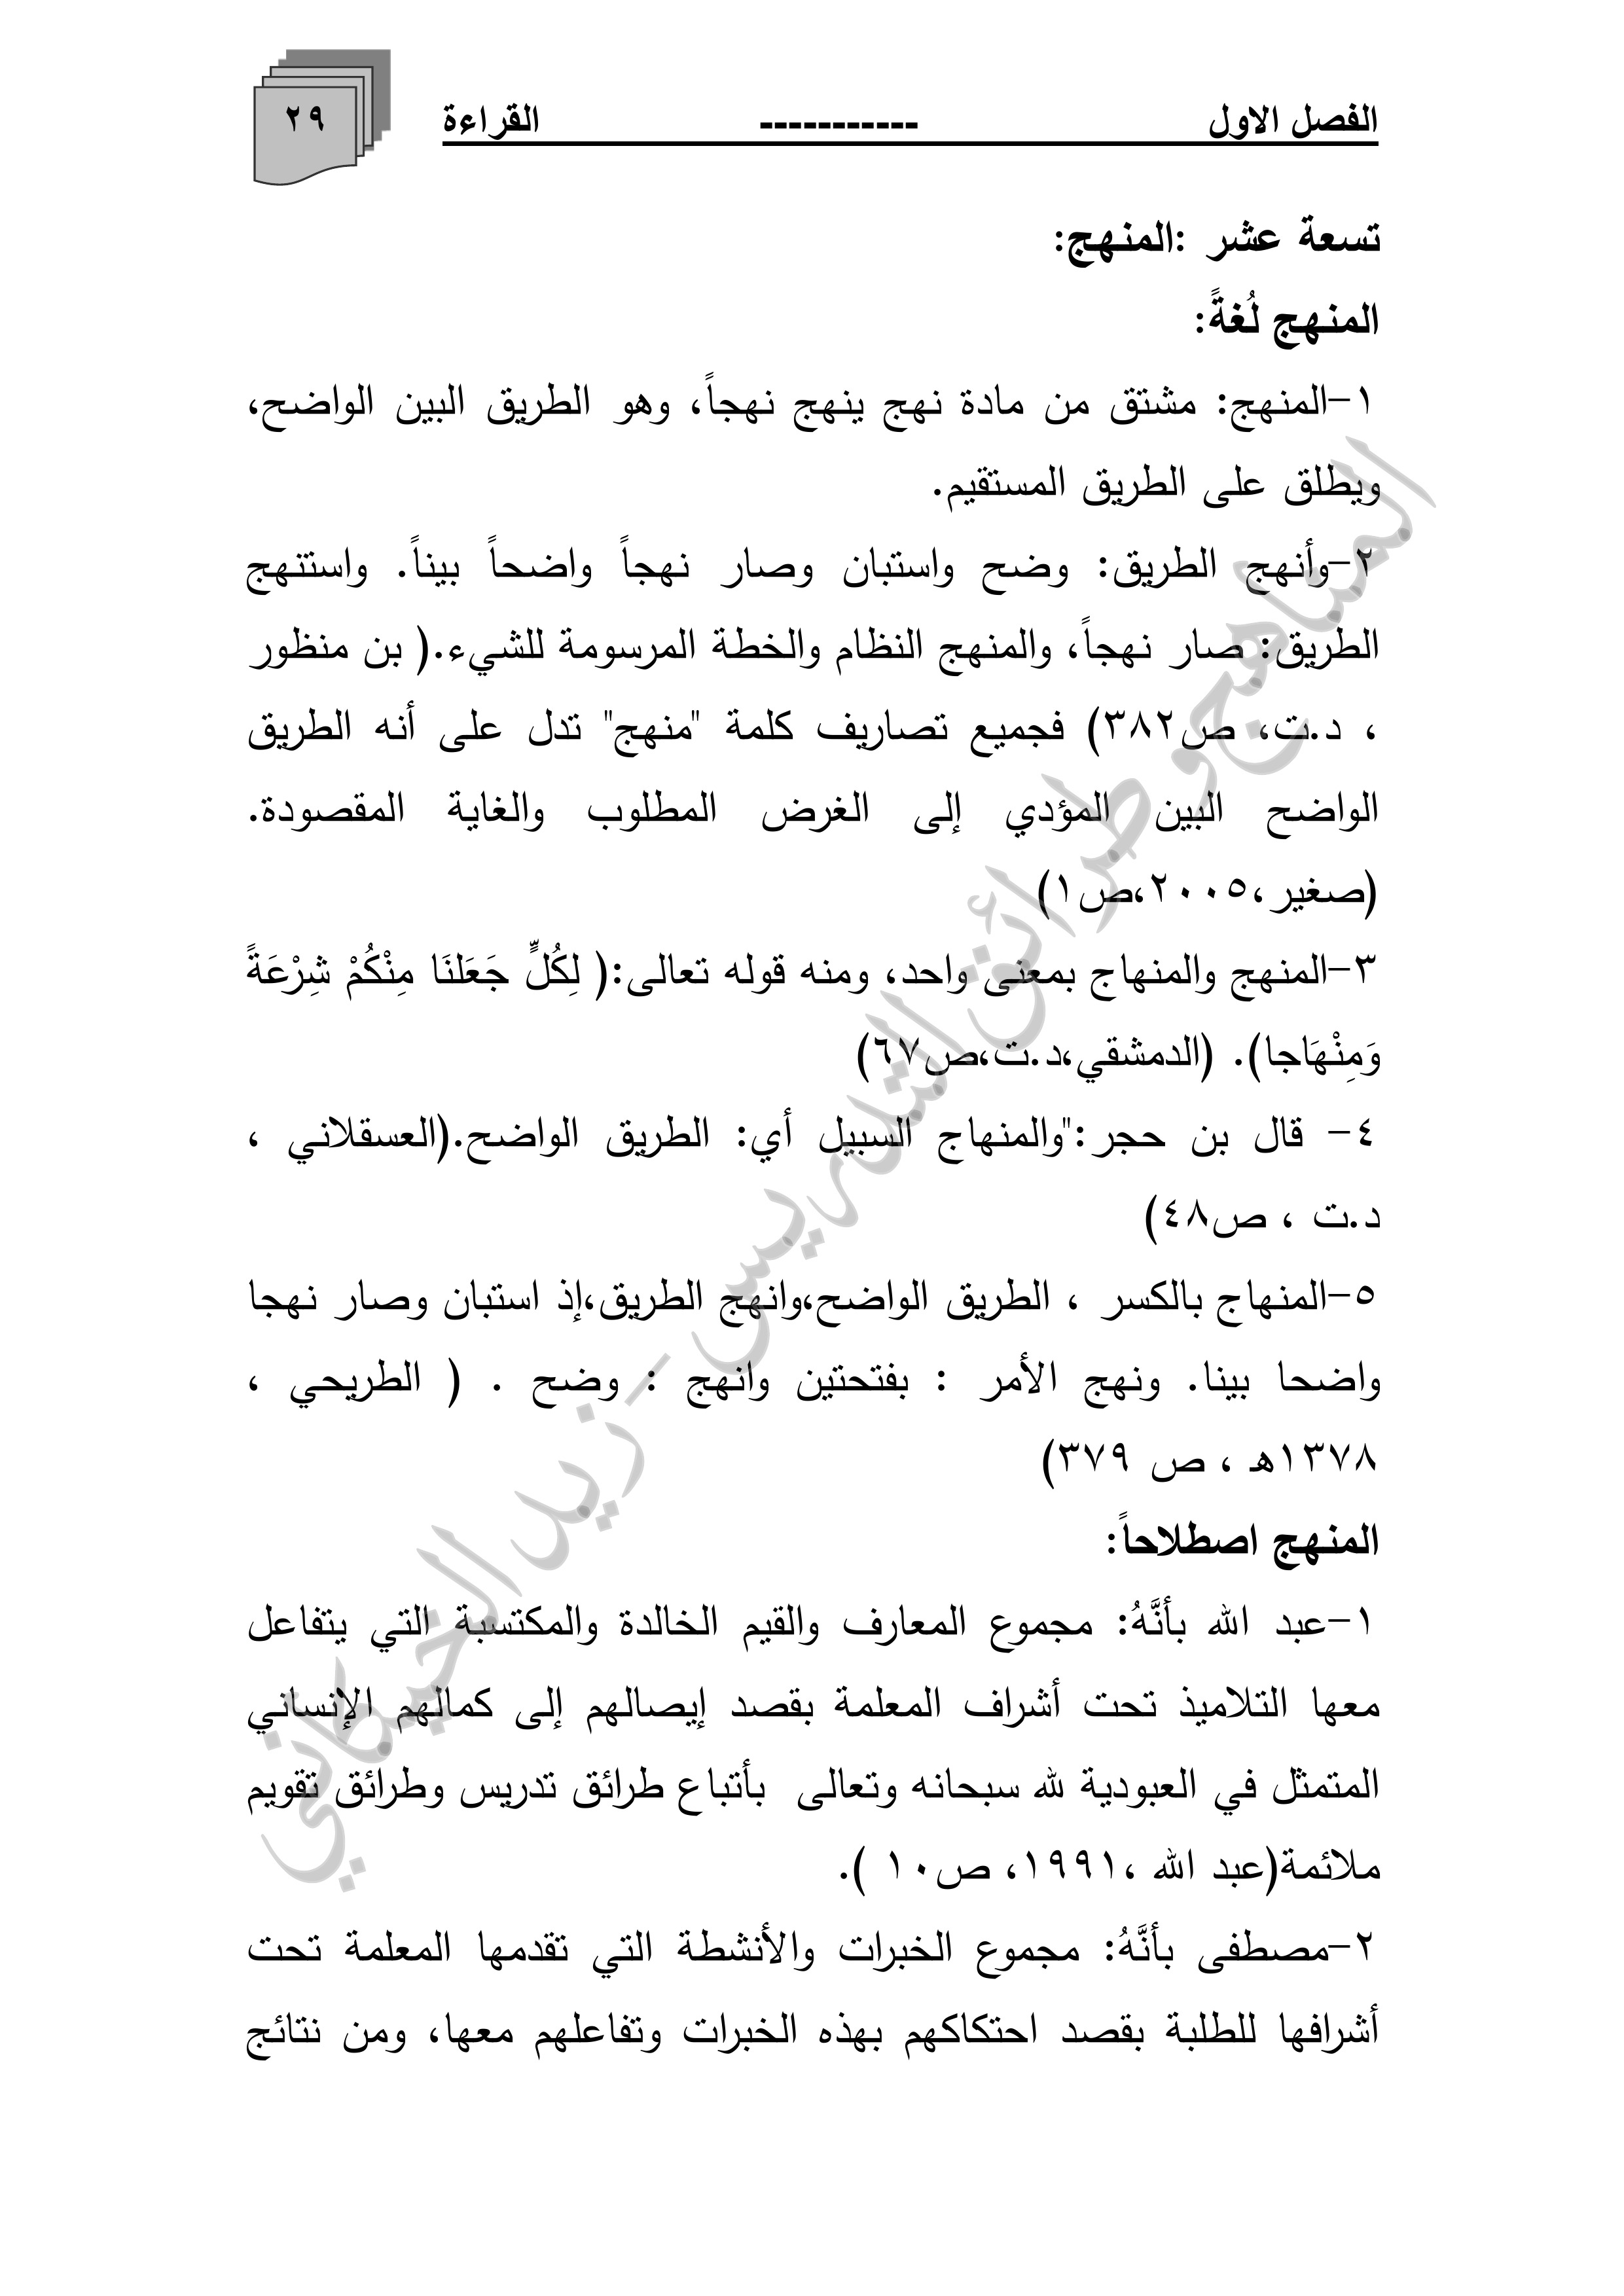 الفصل الاول ----------- القراءة
٢٩
تسعة عشر :المنهج:
المنهج لُغةً:
١-المنهج: مشتق من مادة نهج ينهج نهجاً، وهو الطريق البين الواضح،
ويطلق على الطريق المستقيم.
٢-وأنهج الطريق: وضح واستبان وصار نهجاً واضحاً بيناً. واستنهج
الطريق: صار نهجاً، والمنهج النظام والخطة المرسومة للشيء.( بن منظور
، د.ت، ص٣٨٢) فجميع تصاريف كلمة "منهج" تدل على أنه الطريق
الواضح البين المؤدي إلى الغرض المطلوب والغاية المقصودة.
(صغير،٢٠٠٥،ص١)
٣-المنهج والمنهاج بمعنى واحد، ومنه قوله تعالى:( لِكُلٍّ جَعَلنَا مِنْكُمْ شِرْعَةً
وَمِنْهَاجا). (الدمشقي،د.ت،ص٦٧)
٤- قال بن حجر:"والمنهاج السبيل أي: الطريق الواضح.(العسقلاني ،
د.ت ، ص٤٨)
٥-المنهاج بالكسر ، الطريق الواضح،وانهج الطريق،إذ استبان وصار نهجا
واضحا بينا. ونهج الأمر : بفتحتين وانهج : وضح . ( الطريحي ،
١٣٧٨هـ ، ص ٣٧٩)
المنهج اصطلاحاً:
١-عبد الله بأنَّهُ: مجموع المعارف والقيم الخالدة والمكتسبة التي يتفاعل
معها التلاميذ تحت أشراف المعلمة بقصد إيصالهم إلى كمالهم الإنساني
المتمثل في العبودية لله سبحانه وتعالى بأتباع طرائق تدريس وطرائق تقويم
ملائمة(عبد الله ،١٩٩١، ص١٠ ).
٢-مصطفى بأنَّهُ: مجموع الخبرات والأنشطة التي تقدمها المعلمة تحت
أشرافها للطلبة بقصد احتكاكهم بهذه الخبرات وتفاعلهم معها، ومن نتائج
المناهج وطرائق التدريس - زيد الخيكاني